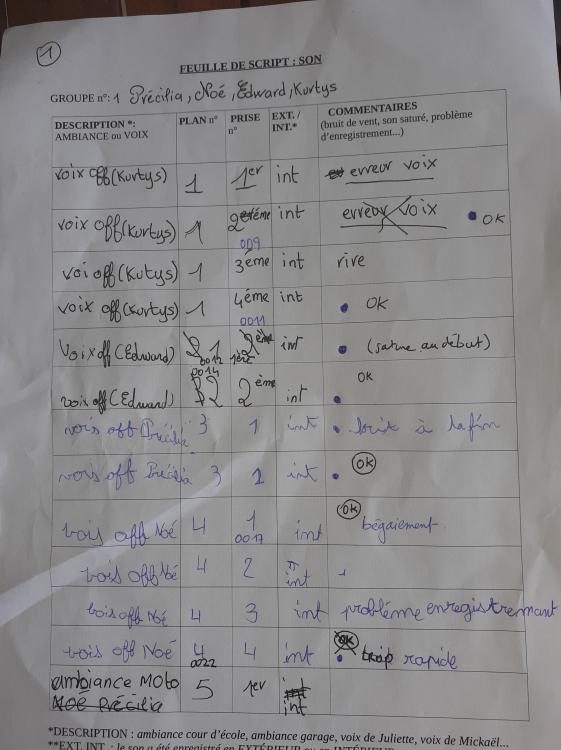 1
FEUILLE DE SCRIPT : SON
GROUPE n°: 1 Précilia, Noé, Edward, Kurtys
DESCRIPTION *: AMBIANCE ou VOIX PLAN n° PRISE n° EXT. / INT.* COMMENTAIRES (bruit de vent, son saturé, problème d'enregistrement...)
voix off (Kurtys) 1 1er int erreur voix
voix off (Kurtys) 1 2éme 009 int erreur voix • OK
voi off (Kutys) 1 3éme int rire
voix off (Kurtys) 1 4éme 0011 int • OK
Voix off (Edward) 1 0012 1er int • (sature au début)
voix off (Edward) 0014 2 2ème int • OK
vois off (Précilia 3 1 int • bruit à la fin
vois off Précilia 3 2 int • OK
vois off Noé 4 1 0017 int OK bégaiement
vois off Noé 4 2 int
vois off Noé 4 3 int probléme enregistremant
vois off Noé 4 0022 4 int OK • trop rapide
ambiance MOTO 5 1er int
NOÉ Précilia int
*DESCRIPTION : ambiance cour d'école, ambiance garage, voix de Juliette, voix de Mickaël...
**EXT. INT. : le son a été enregistré en EXTÉRIEUR ou en INTÉRIEUR